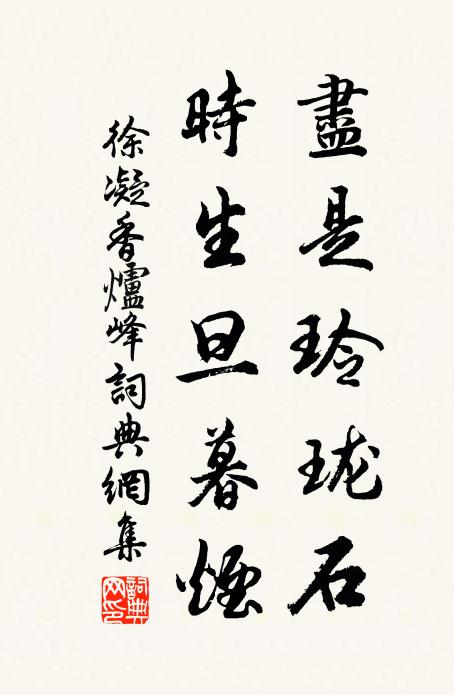 盡是玲瓏石
時生旦暮煙
徐凝香爐峰詞典網集
詞典網印